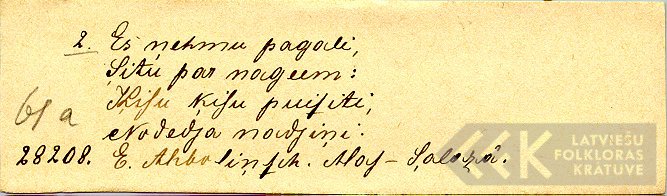 2. Es nehmu pagali,
Situ par nageem:
Ķiſu ķiſu puiſiti,
Nodedſa nadſiņi.
61a
28208. E. Ahboliņſch. Maſ-Salazâ.
LATVIEŠU
FOLKLORAS
KRATUVE